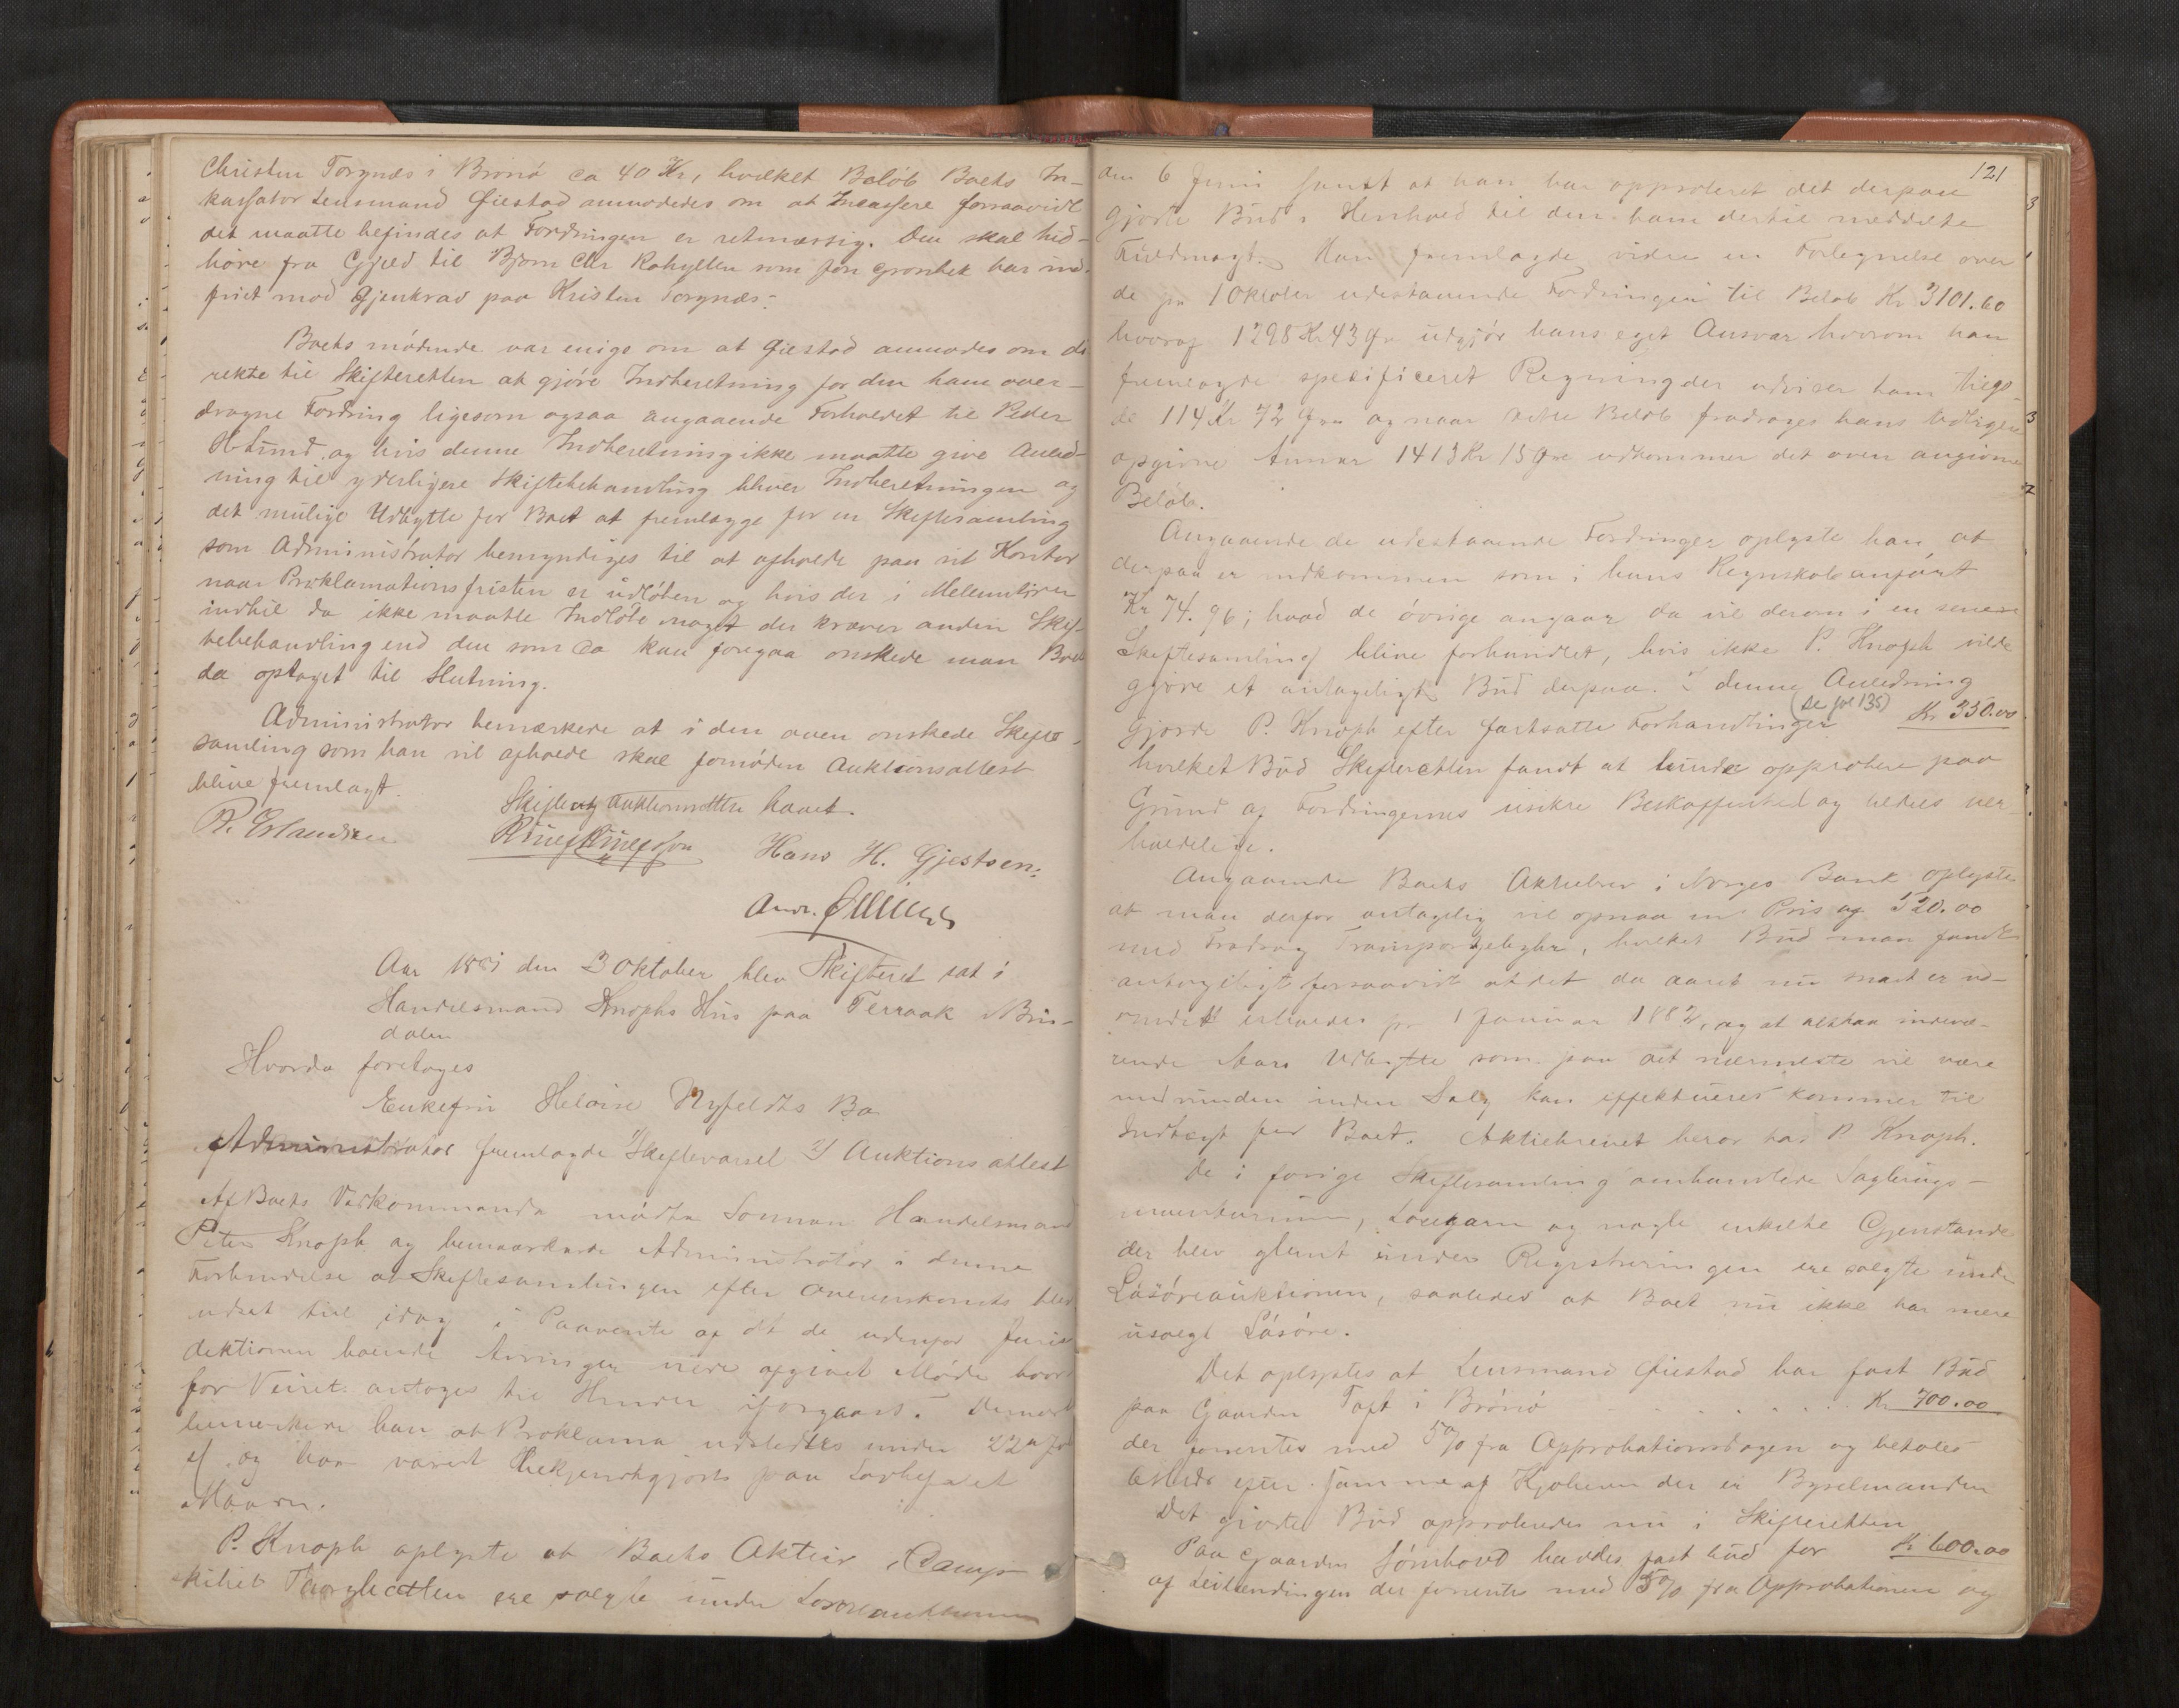 Christen Torgnæs i Brønø ca 40 Kr, hvilket Beløb Boets In-
kassator Lensmand Qiestad anmodedes om at Incassere forsaavidt
det maatte befindes at Fordringen er retmæssig. Den skal hid-
høre fra Gjæld til Bjørn Chr som har ind-
friet mod Gjenkrav paa Kristen Torgnæs.
Boets mødende var enige om at Qiestad anmodes om di
rekte til Skifteretten at gjøre Indberetning for den ham over-
dragne Fordring ligesom ogsaa angaaende Forholdet til Peder
H. Lund og hvis denne Indberetning ikke maatte give Anled-
ning til yderligere Skiftebehandling bliver Indberetningen og
det mulige Udbytte for Boet at fremlægge for en Skiftesamling
som Administrator bemyndiges til at afholde paa sit Kontor
naar Proklamationsfristen er udløben og hvis der i Mellemtiden
indtil da ikke maatte Indløbe noget der kræver anden Skif-
tebehandling end den som da kan foregaa ønskede man Boet
da optaget til Slutning.
Administrator bemærkede at i den oven ønskede Skifte-
samling som han vil afholde skal fornøden Auktionsattest
blive fremlagt.
Skifte og Auktionsretten hævet.
R. Erlandsen
Hans H. Gjestsen.
Andr.
Aar 1881 den 3 Oktober blev Skifteret sat i
Handelsmand Knophs Hus paa Terraak i Bin-
dalen
Hvorda foretoges
Enkefru Heloise Nyfeldts Bo
Administrator fremlagde 1/ Skiftevarsel 2/ Auktionsattest
Af Boets Vedkommende mødte Sønnen Handelsmand
Peter Knoph og bemærkede Administrator i denne
Forbindelse at Skiftesamlingen efter Overenskomst blev
udsat til idag i Paavente af at de udenfor Juris
diktionen boende Arvinger vilde afgivet Møde hvor
for Veiret antages til Hinder iforgaars. Dernæst
bemærkede han at Proklama udstedtes under 22n
og har været bekjendtgjort paa Lovbefalet
Maade.
P. Knoph oplyste at Boets Aktier i Damp
skibet Torghatten ere solgte under Løsøreauktionen
121
den 6 Juni samt at han har approberet det derpaa
gjorte Bud i Henhold til den ham dertil meddelte
Fuldmagt. Han fremlagde videre en Fortegnelse over
de pr 1 Oktober udestaaende Fordringer til Beløb Kr 3101.60
hvoraf 1298 Kr 43 Øre udgjør hans eget Ansvar hvorom han
fremlagde specificeret Regning der udviser ham tilgo-
de 114 Kr 72 Øre og naar dette Beløb fradrages hans tidligere
opgivne Ansvar 1413 Kr 15 Øre udkommer det oven angivne
Beløb.
Angaaende de udestaaende Fordringer oplyste han at
derpaa er indkommen som i hans Regnskab anført
Kr 74.96; hvad de øvrige angaar da vil derom i en senere
Skiftesamling blive forhandlet, hvis ikke P. Knoph vilde
gjøre et antageligt Bud derpaa. I denne Anledning
(se fol 135)
gjorde P. Knoph efter fortsatte Forhandlinger Kr 350.00
hvilket Bud Skifteretten fandt at burde approbere paa
Grund af Fordringernes usikre Beskaffenhed og
holdelige.
Angaaende Boets Aktiebrev i Norges Bank oplystes
at man derfor antagelig vil opnaa en Pris af 520.00
med Fradrag Transportgebyhr, hvilket Bud man fandt
antageligt forsaavidt at det da aaret nu snart er ud-
rundet erholdes pr 1 Januar 1882, og at altsaa indevæ-
rende Aars Udbytte som paa det nærmeste vil være
udrunden inden Salg kan effektueres kommer til
Indtægt for Boet. Aktiebrevet beror hos P. Knoph.
De i forige Skiftesamling omhandlede Sagbrugs-
inventarium, og nogle enkelte Gjenstande
der blev glemt under Registeringen ere solgte under
Løsøreauktionen, saaledes at Boet nu ikke har mere
usolgt Løsøre.
Det oplystes at Lensmand Qiestad har fast Bud
paa Gaarden Toft i Brønø . . . . . . . . Kr 700.00
der forrentes med 5% fra Approbationsdagen og betales
efter samme af Kjøberen der er Bygselmanden
Det givte Bud approberedes nu i Skifteretten
Paa Gaarden Sømhovd havdes fast bud for Kr 600.00
af Leilendingen der forrentes med 5% fra Approbationen og